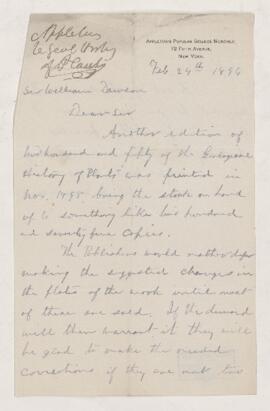 Appleton
to Geol Hist'y
of Plants
APPLETON'S POPULAR SCIENCE MONTHLY,
72 FIFTH AVENUE,
NEW YORK.
Feb 24th 1896
Sir William Dawson
Dear Sir
Another edition of
two hundred and fifty of the Geological
History of Plants was printed in
Nov. 1895 bring the stock on hand
up to something like two hundred
and seventy five Copies.
The Publishers would rather defer
making the suggested changes in
the plates of the work until most
of these are sold. If the demand
will then warrant it they will
be glad to make the needed
corrections if they are not too